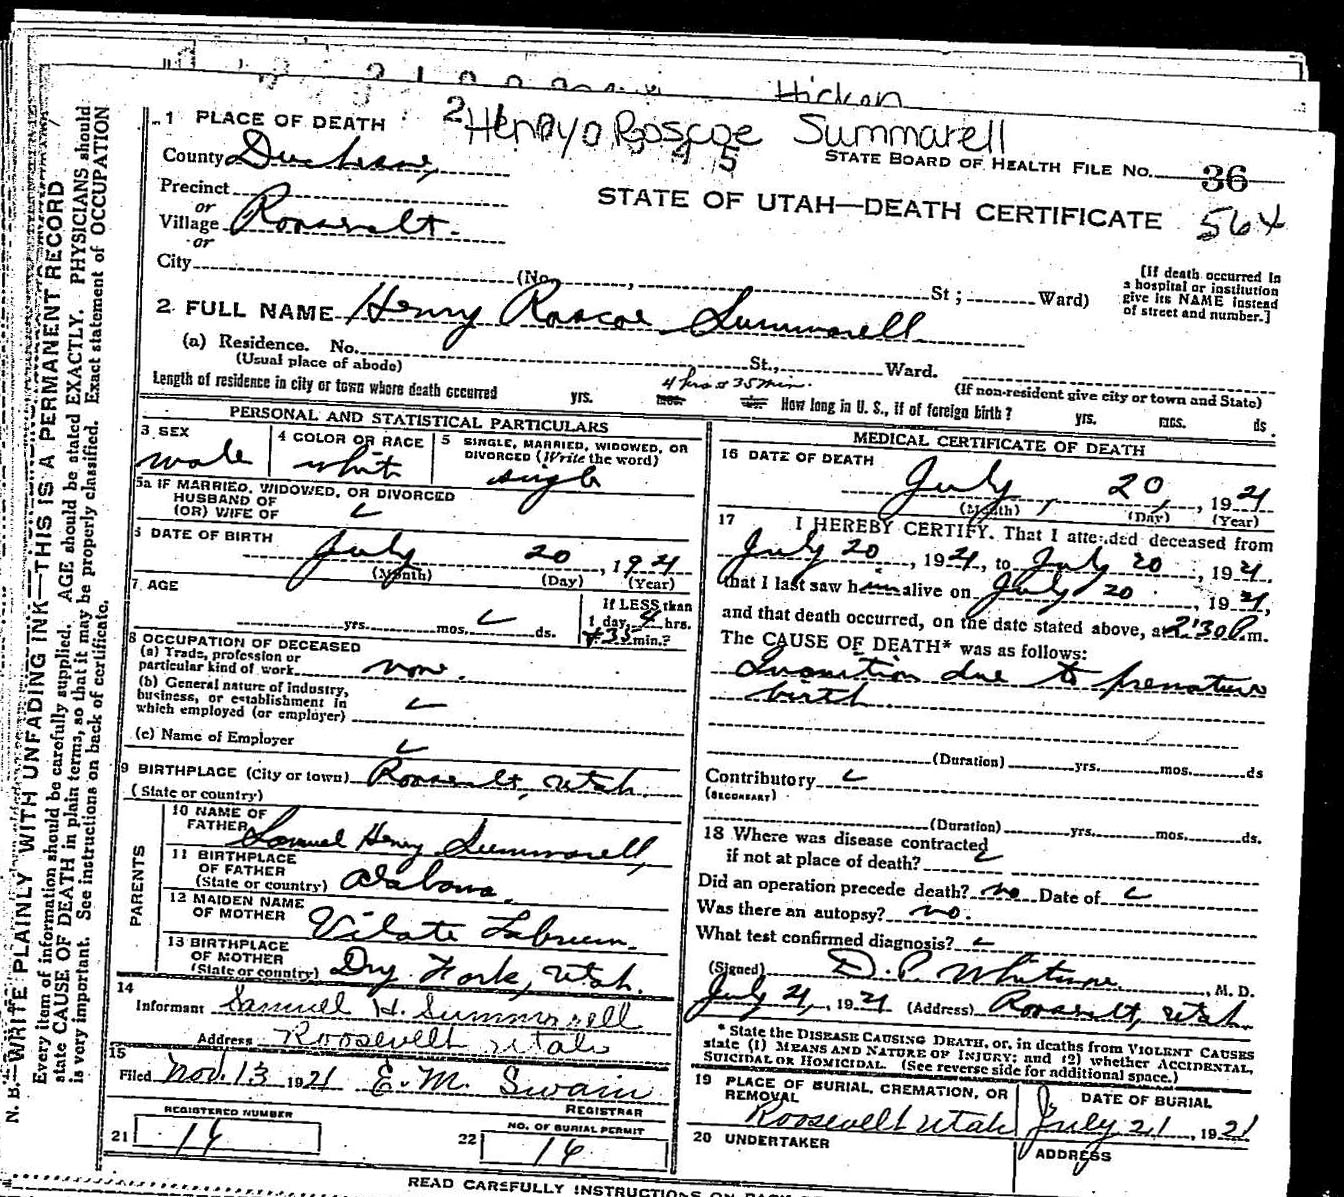 Hicken
Henry Roscoe Summarell
1 PLACE OF DEATH
STATE BOARD OF HEALTH FILE No. 36
County Duchesne,
STATE OF UTAH—DEATH CERTIFICATE 564
Precinct
or
Village Roosevelt.
or
City (No. , St ; Ward)
[If death occurred in
a hospital or institution
give its NAME instead
of street and number.]
2 FULL NAME Henry Roscoe Summarell
(a) Residence. No. St., Ward.
(Usual place of abode) (If non-resident give city or town and State)
4 hrs & 35 min.
Length of residence in city or town where death occurred yrs. mos. ds. How long in U. S., if of foreign birth? yrs. mos. ds.
PERSONAL AND STATISTICAL PARTICULARS
3 SEX male
4 COLOR OR RACE white
5 SINGLE, MARRIED, WIDOWED, OR
DIVORCED (Write the word)
single
5a IF MARRIED, WIDOWED, OR DIVORCED
HUSBAND OF
(OR) WIFE OF
6 DATE OF BIRTH
July 20, 1921
(Month) (Day) (Year)
7 AGE
yrs. mos. ds.
If LESS than
1 day, 4 hrs.
+ 35 min.?
8 OCCUPATION OF DECEASED
(a) Trade, profession or
particular kind of work none.
(b) General nature of industry,
business, or establishment in
which employed (or employer)
(c) Name of Employer
9 BIRTHPLACE (City or town) Roosevelt, Utah.
(State or country)
PARENTS
10 NAME OF
FATHER Samuel Henry Summarell,
11 BIRTHPLACE
OF FATHER
(State or country) Alabama.
12 MAIDEN NAME
OF MOTHER Vilate Labrum.
13 BIRTHPLACE
OF MOTHER
(State or country) Dry Fork, Utah.
14
Informant Samuell H. Summarell
Address Roosevelt Utah
15
Filed Nov. 13 1921 E. M. Swain
REGISTRAR
REGISTERED NUMBER
21 14
NO. OF BURIAL PERMIT
22 14
MEDICAL CERTIFICATE OF DEATH
16 DATE OF DEATH
July, 20, 1921
(Month) (Day) (Year)
17 I HEREBY CERTIFY, That I attended deceased from
July 20, 1921, to July 20, 1921,
that I last saw him alive on July 20, 1921,
and that death occurred, on the date stated above, at 2:30 P.m.
The CAUSE OF DEATH* was as follows:
Inanition due to premature
birth
(Duration) yrs. mos. ds
Contributory
(SECONDARY)
(Duration) yrs. mos. ds.
18 Where was disease contracted
if not at place of death?
Did an operation precede death? no Date of
Was there an autopsy? no.
What test confirmed diagnosis?
(Signed) D. P. Whitmore, M. D.
July 21, 1921 (Address) Roosevelt, Utah.
* State the DISEASE CAUSING DEATH, or, in deaths from VIOLENT CAUSES
state (1) MEANS AND NATURE OF INJURY; and (2) whether ACCIDENTAL,
SUICIDAL OR HOMICIDAL. (See reverse side for additional space.)
19 PLACE OF BURIAL, CREMATION, OR
REMOVAL
Roosevelt Utah
DATE OF BURIAL
July 21, 1921
20 UNDERTAKER
ADDRESS
N. B.—WRITE PLAINLY WITH UNFADING INK—THIS IS A PERMANENT RECORD
Every item of information should be carefully supplied. AGE should be stated EXACTLY. PHYSICIANS should
state CAUSE OF DEATH in plain terms, so that it may be properly classified. Exact statement of OCCUPATION
is very important. See instructions on back of certificate.
READ CAREFULLY INSTRUCTIONS ON BACK